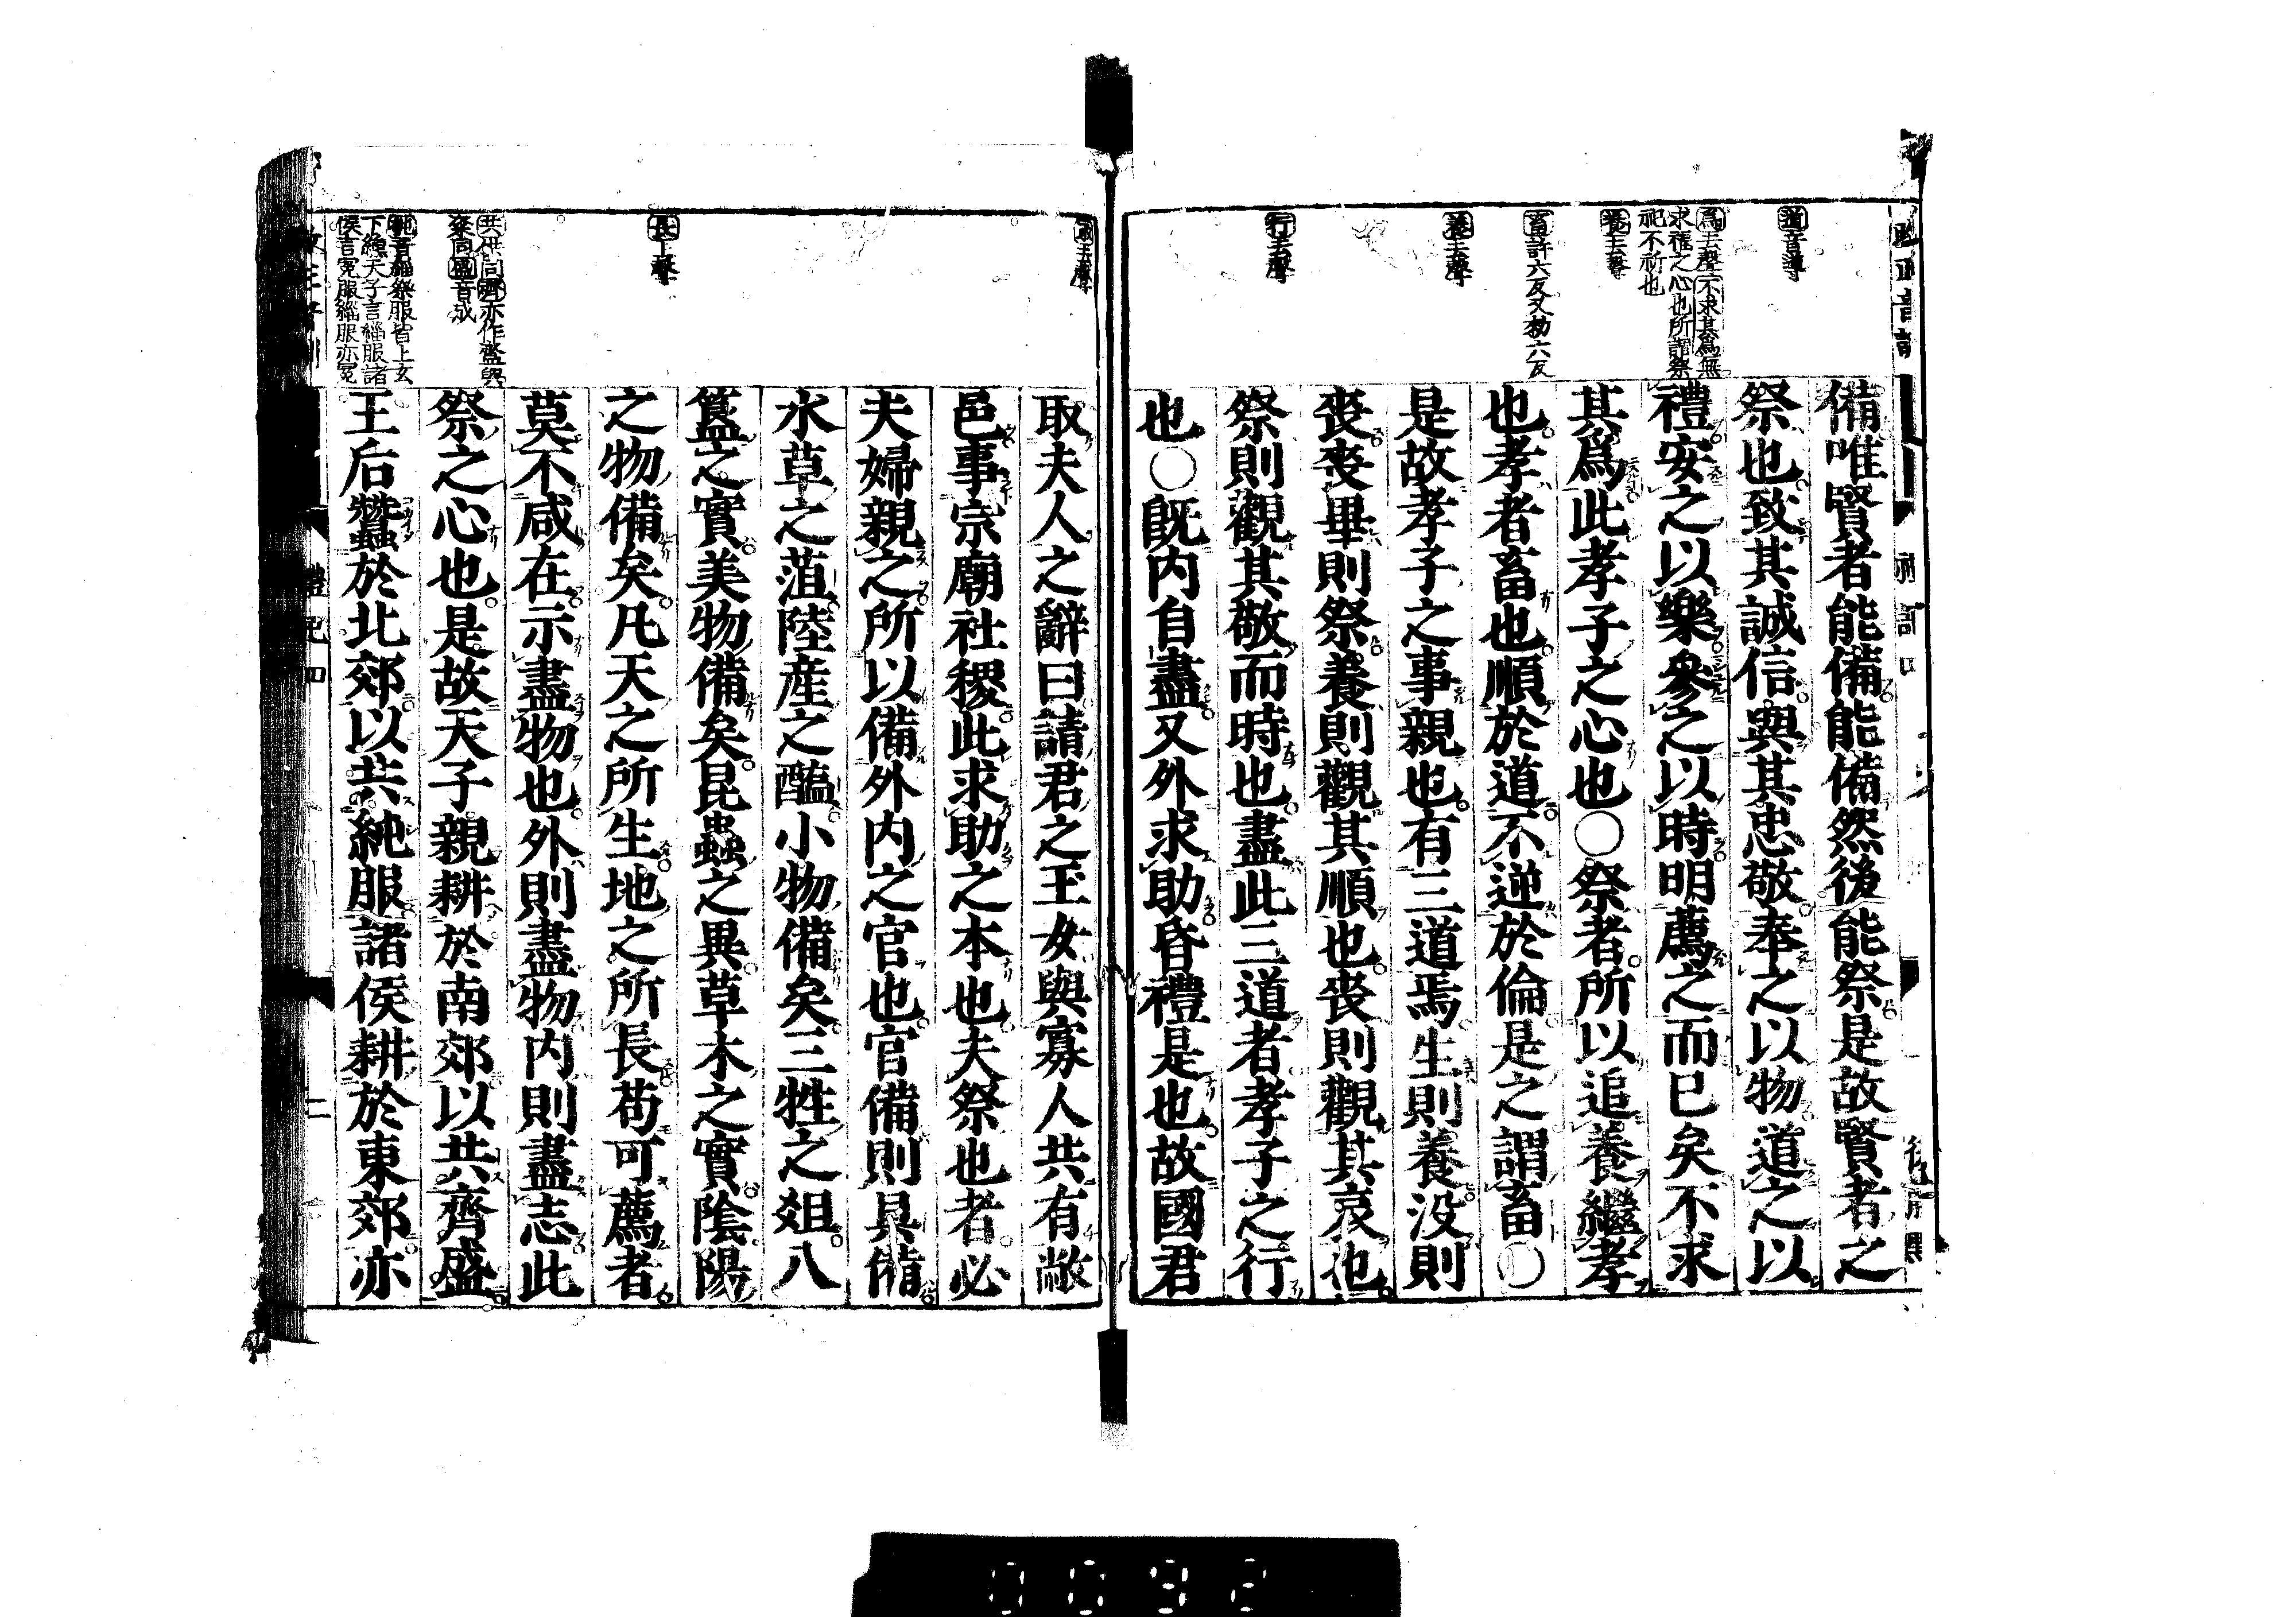 道音導
爲去聲不求其爲無
求福之心也所謂祭
祀不祈也
養去聲
畜許六反又勑六反
養去聲
行去聲
備唯賢者能備能備然後能祭是故賢者之
祭也致其誠信與其忠敬奉之以物道之以
禮安之以樂參之以時明薦之而已矣不求
其爲此孝子之心也○祭者所以追養繼孝
也孝者畜也順於道不逆於倫是之謂畜○
是故孝子之事親也有三道焉生則養没則
喪喪畢則祭養則觀其順也喪則觀其哀也
祭則觀其敬而時也盡此三道者孝子之行
也○既内自盡又外求助昏禮是也故國君
去聲
長上聲
共供同齊亦作齍與
粢同盛音成
純音緇祭服皆上玄
下纁天子言緇服諸
侯言冕服緇服亦冕
取夫人之辭曰請君之玉女與寡人共有敝
邑事宗廟社稷此求助之本也夫祭也者必
夫婦親之所以備外内之官也官備則具備
水草之菹陸産之醢小物備矣三牲之俎八
簋之實美物備矣昆蟲之異草木之實陰陽
之物備矣凡天之所生地之所長苟可薦者
莫不咸在示盡物也外則盡物内則盡志此
祭之心也是故天子親耕於南郊以共齊盛
王后蠶於北郊以共純服諸侯耕於東郊亦
禮記四
二